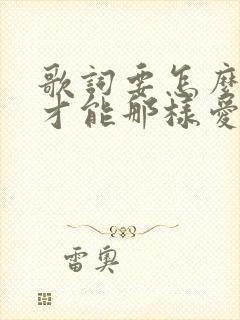 歌詞要怎麼
才能那樣愛
雷奧